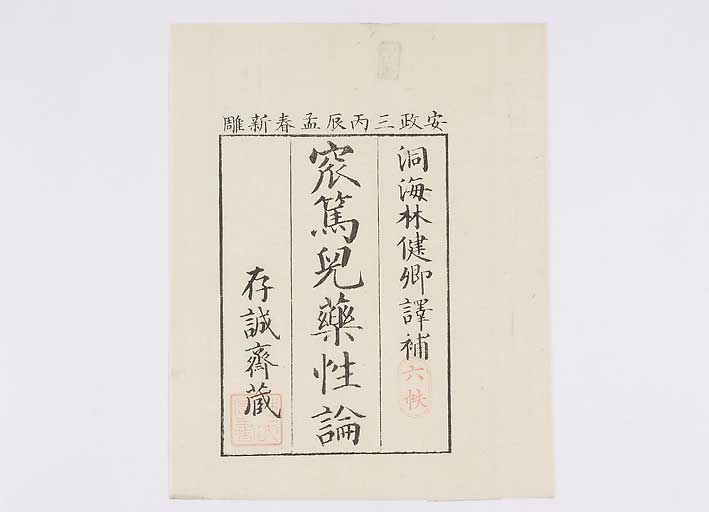 安政三丙辰孟春新雕
洞海林健卿譯補
六帙
窊篤児藥性論
存誠齋蔵